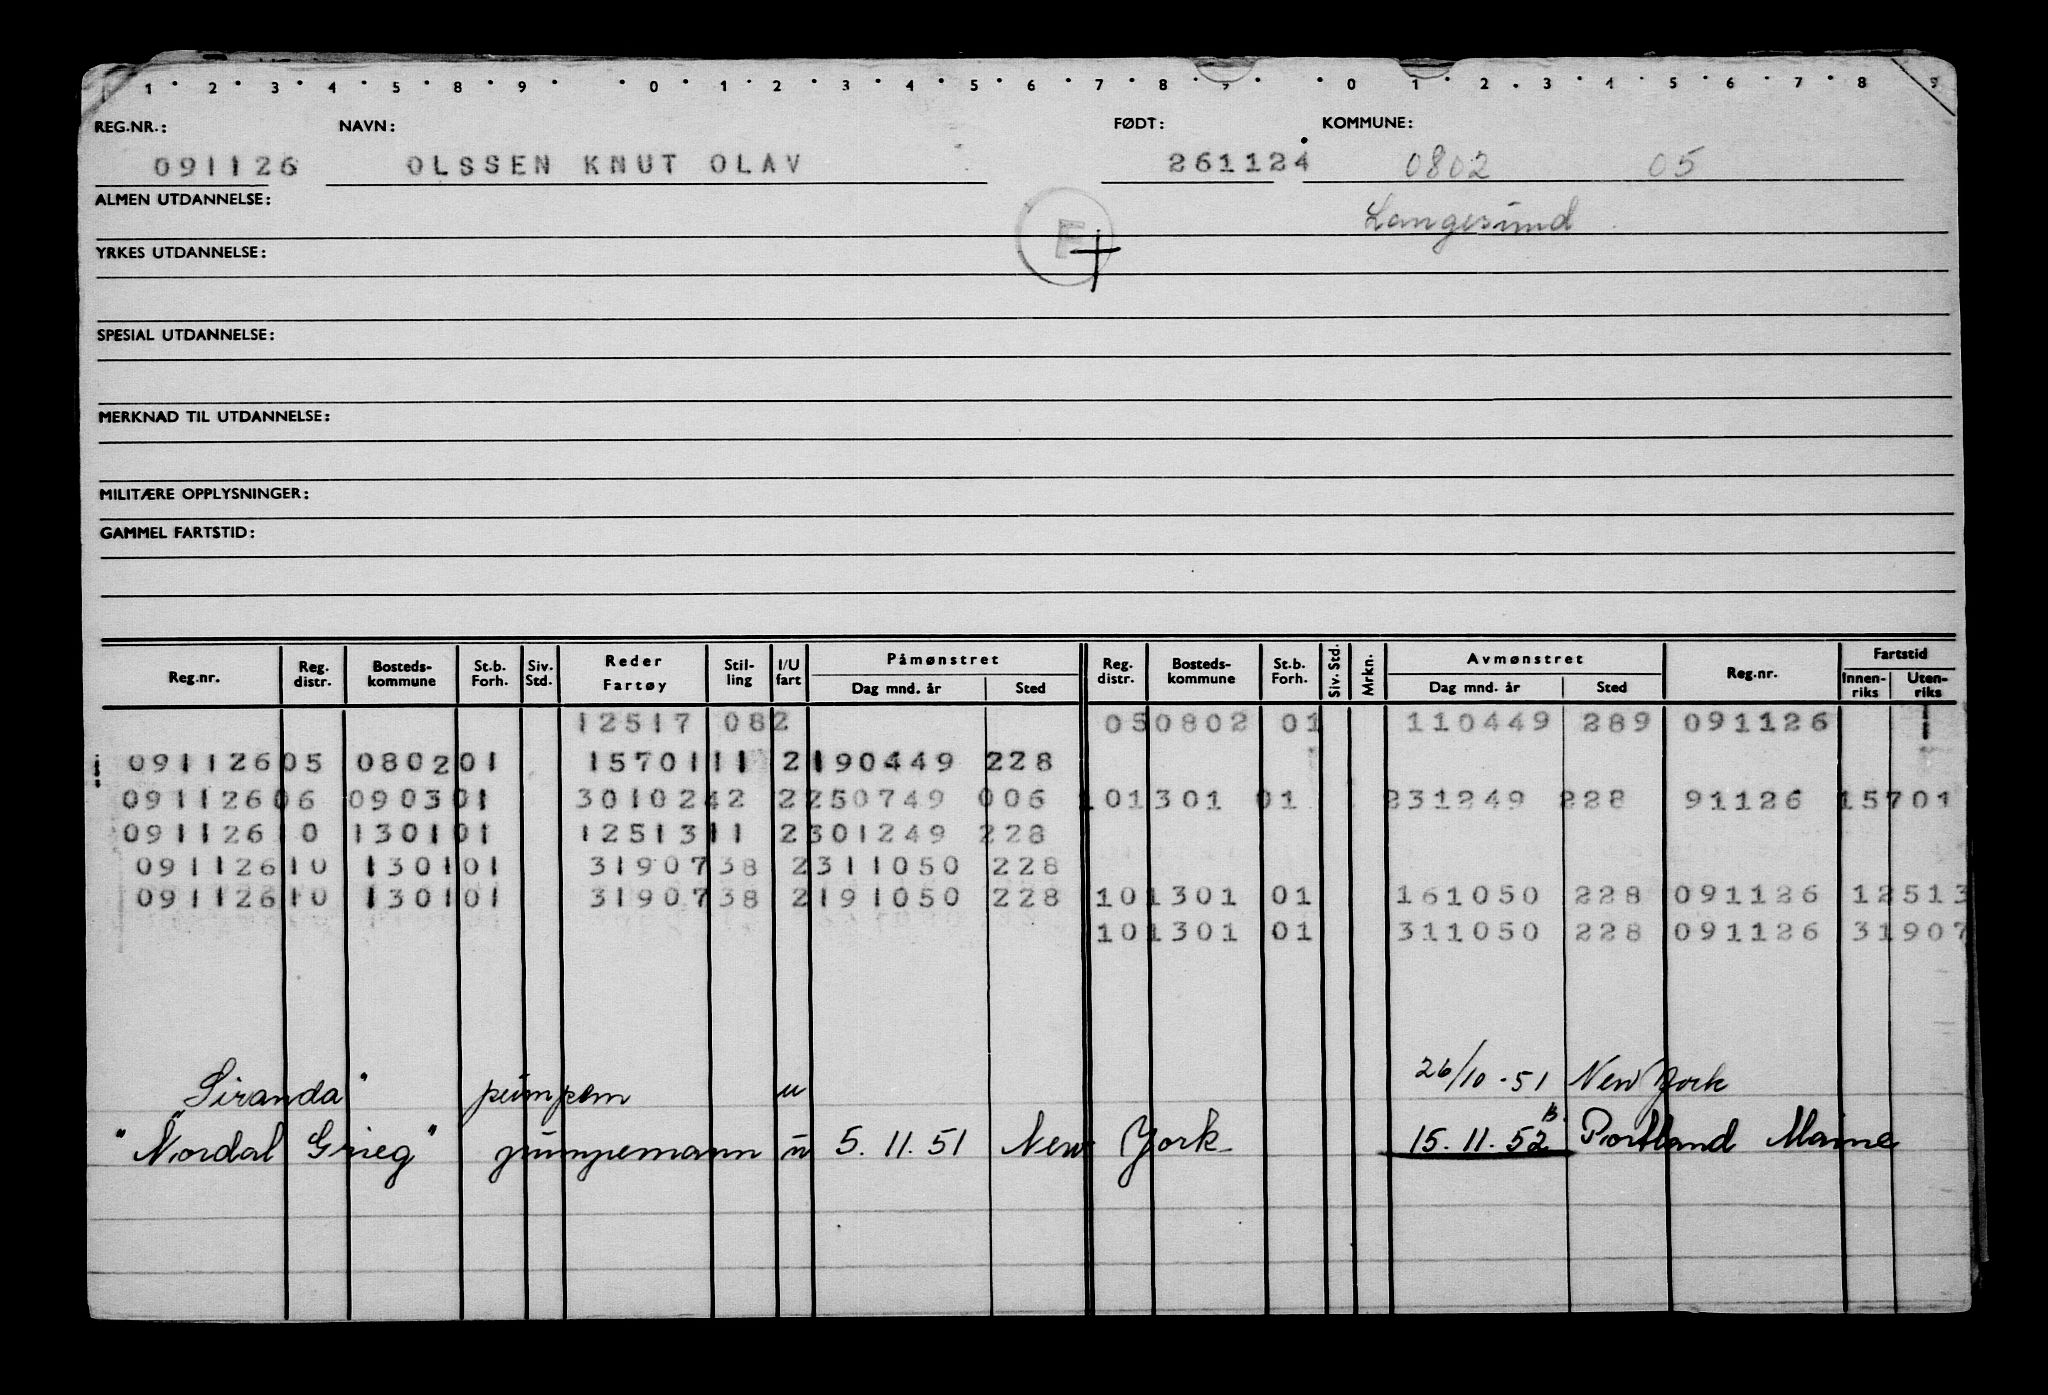 1 2 3 4 5 8 9 0 1 2 3 4 5 6 7 8 9 0 1 2 3 4 5 6 7 8 9
REG.NR.: NAVN: FØDT: KOMMUNE:
091126 OLSSEN KNUT OLAV 261124 0802 05
ALMEN UTDANNELSE: Langesund
F
YRKES UTDANNELSE:
SPESIAL UTDANNELSE:
MERKNAD TIL UTDANNELSE:
MILITÆRE OPPLYSNINGER:
GAMMEL FARTSTID:
Reg.nr. Reg. distr. Bosteds-kommune St.b. Forh. Siv. Std. Reder Fartøy Stil-ling I/U fart Påmønstret Dag mnd. år Sted Reg. distr. Bosteds-kommune St.b. Forh. Siv. Std. Mrkn. Avmønstret Dag mnd. år Sted Reg.nr. Fartstid Innen-riks Uten-riks
12517 082 050802 01 110449 289 091126
09112605 080201 1570111 2190449 228
09112606 090301 3010242 2250749 006 101301 01 231249 228 91126 15701
09112610 130101 1251311 2301249 228
09112610 130101 3190738 2311050 228
09112610 130101 3190738 2191050 228 101301 01 161050 228 091126 12513
101301 01 311050 228 091126 31907
"Siranda" pumpem u 26/10-51 New York
"Nordal Grieg" pumpemann u 5.11.51 New York 15.11.52 Portland Maine